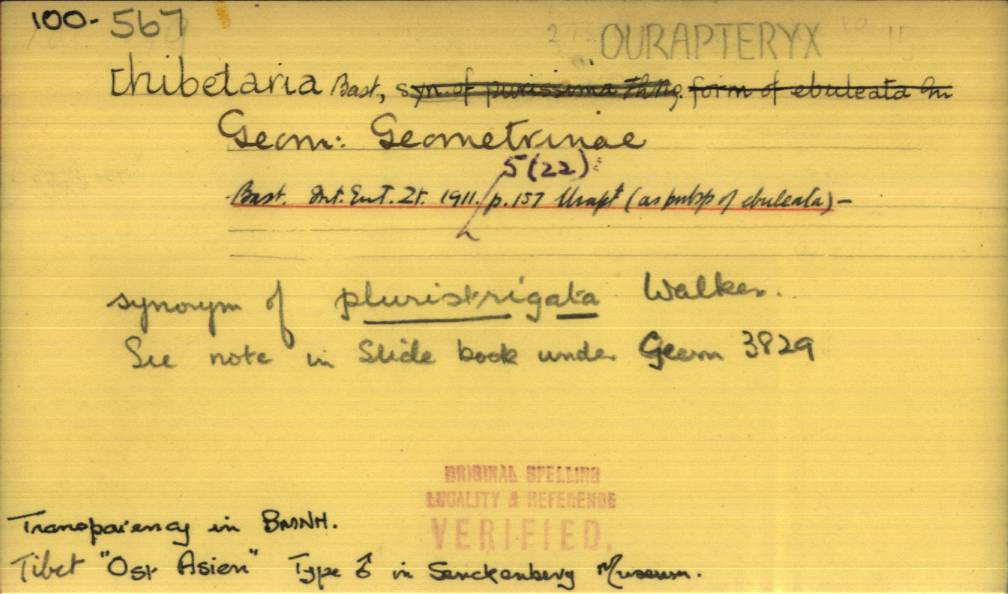 100-567
OURAPTERYX
thibetaria Bast, syn. of purissima Th.Mg. form of ebuleata Gn
Geom: Geometrinae
5(22):
Bast. Int. Ent. Zt. 1911. p.157 Urapt (as subsp of ebuleata)-
synonym of pluristrigata Walker.
See note in Slide book under Geom 3829
ORIGINAL SPELLING
LOCALITY & REFERENCE
VERIFIED.
Transparency in BMNH.
Tibet "Ost Asien" Type ♂ in Senckenberg Museum.